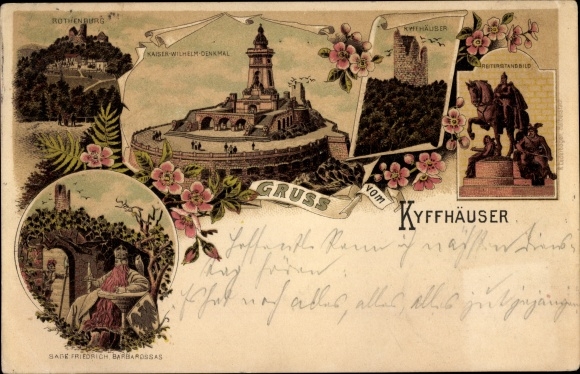 ROTHENBURG
KAISER-WILHELM-DENKMAL
KYFFHÄUSER
REITERSTANDBILD
GRUSS vom
KYFFHÄUSER
Hoffentlich kann ich nächsten Diens-
tag hören
Es hat noch alles, alles, alles gut gegangen
SAGE FRIEDRICH BARBAROSSAS